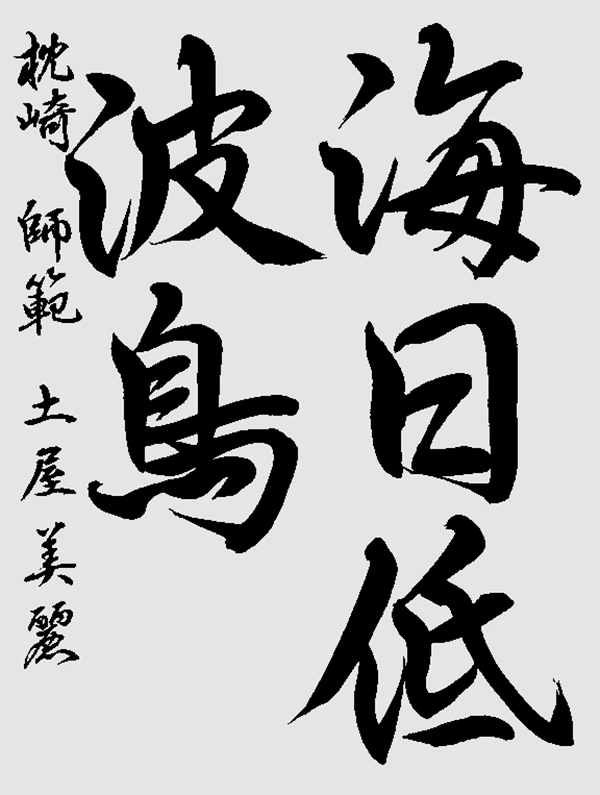 海日低
波鳥
枕崎 師範 土屋美麗